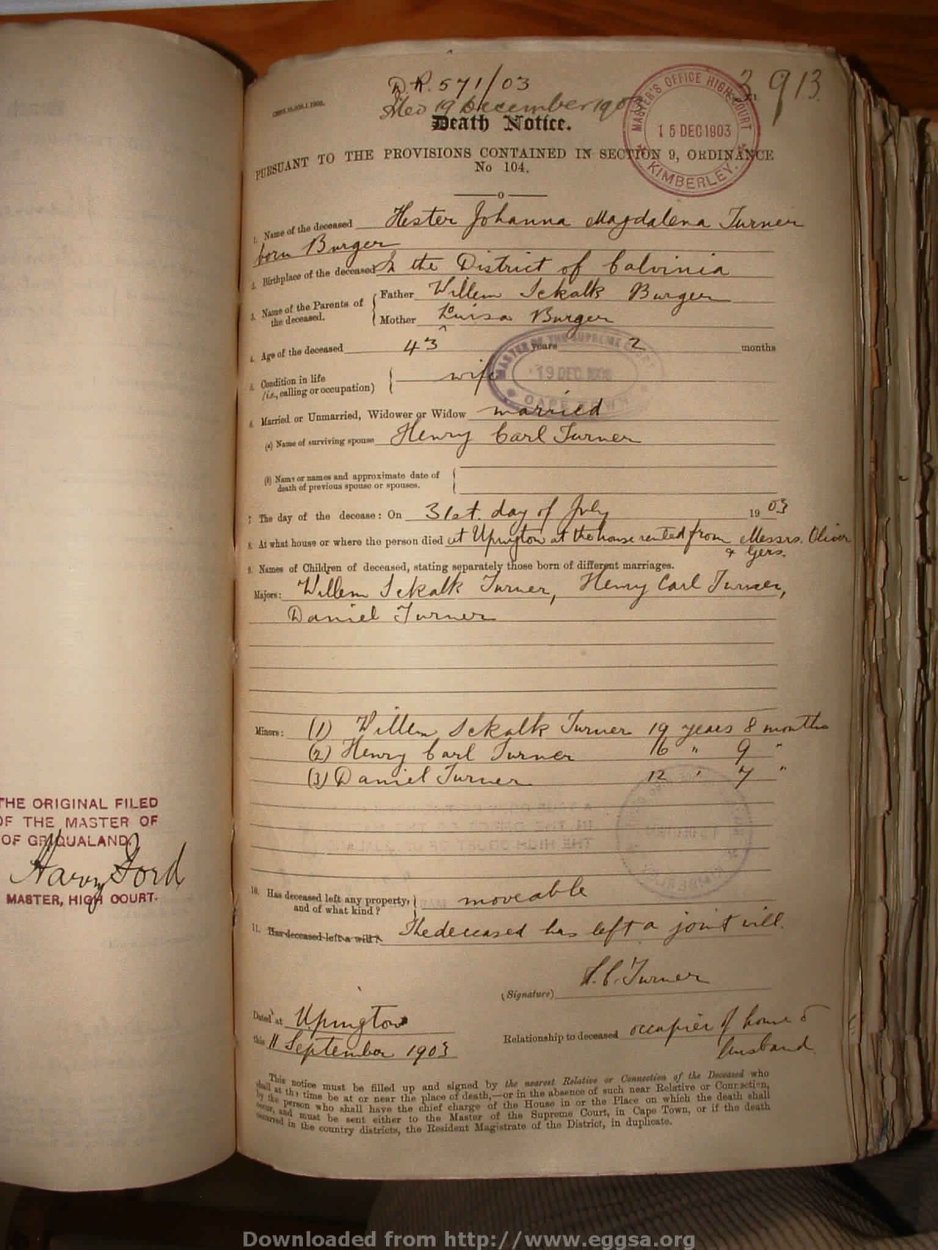 D.R. 571/03
3913
Filed 19 December 1903
MASTER'S OFFICE HIGH COURT
15 DEC 1903
KIMBERLEY.
Death Notice.
PURSUANT TO THE PROVISIONS CONTAINED IN SECTION 9, ORDINANCE
No 104.
1. Name of the deceased Hester Johanna Magdalena Turner
born Burger
2. Birthplace of the deceased In the District of Calvinia
3. Name of the Parents of the deceased. Father Willem Sckalk Burger
Mother Luisa Burger
4. Age of the deceased 43 years 2 months
MASTER OF THE SUPREME COURT
19 DEC 1903
CAPE TOWN
5. Condition in life (i.e., calling or occupation) wife
6. Married or Unmarried, Widower or Widow married
(a) Name of surviving spouse Henry Carl Turner
(b) Name or names and approximate date of
death of previous spouse or spouses.
7. The day of the decease: On 31st. day of July 1903
8. At what house or where the person died at Upington at the house rented from Messrs. Oliver
& Gers.
9. Names of Children of deceased, stating separately those born of different marriages.
Majors: Willem Sckalk Turner, Henry Carl Turner,
Daniel Turner
Minors: (1) Willem Sckalk Turner 19 years 8 months
(2) Henry Carl Turner 16 " 9 "
(3) Daniel Turner 12 " 7 "
10. Has deceased left any property, and of what kind? moveable
11. Has deceased left a will? The deceased has left a joint will.
(Signature) H.C. Turner
Dated at Upington
this 11 September 1903
Relationship to deceased occupier of home &
husband
This notice must be filled up and signed by the nearest Relative or Connection of the Deceased who
shall at the time be at or near the place of death,—or in the absence of such near Relative or Connection,
by the person who shall have the chief charge of the House in or the Place on which the death shall
occur, and must be sent either to the Master of the Supreme Court, in Cape Town, or if the death
occurred in the country districts, the Resident Magistrate of the District, in duplicate.
THE ORIGINAL FILED
OF THE MASTER OF
OF GRIQUALAND
Harry Ford
MASTER, HIGH COURT.
Downloaded from http://www.eggsa.org